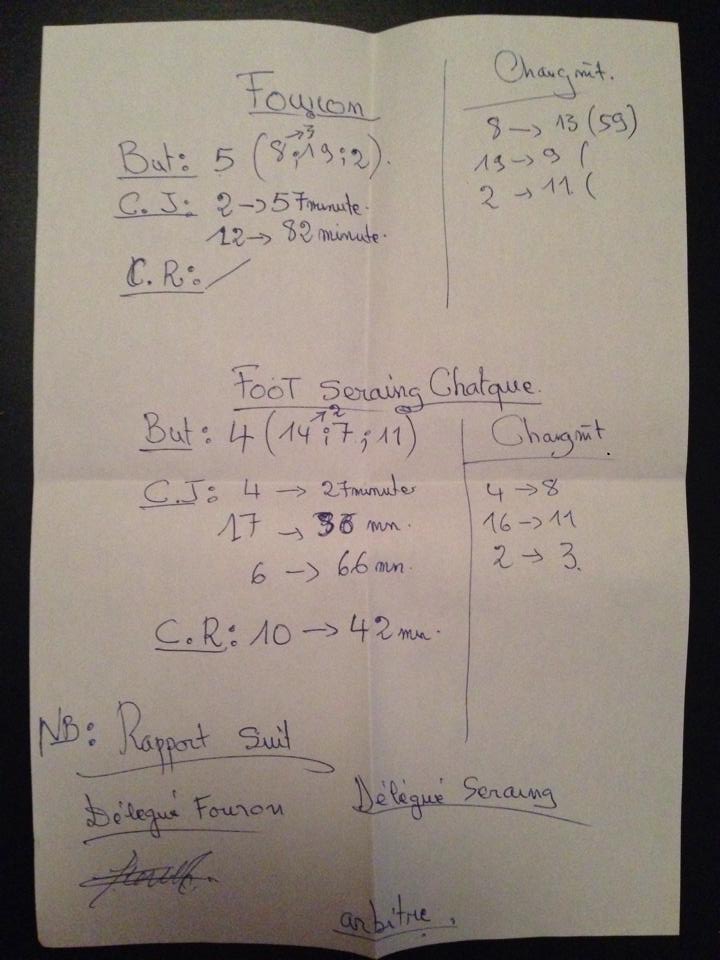 Fouron
But: 5 (8→3;19;2).
C.J: 2→57minute.
12→82minute.
C.R: /
Changmt.
8→13(59)
19→9 (
2→11 (
FOOT Seraing Chatque.
But: 4(14→2;7;11)
C.J: 4→27minutes
17→ mn.
6→66mn.
C.R: 10→42mn.
Changmt
4→8
16→11
2→3.
NB: Rapport Suit
Délegué Fouron
Délégué Seraing
arbitre.